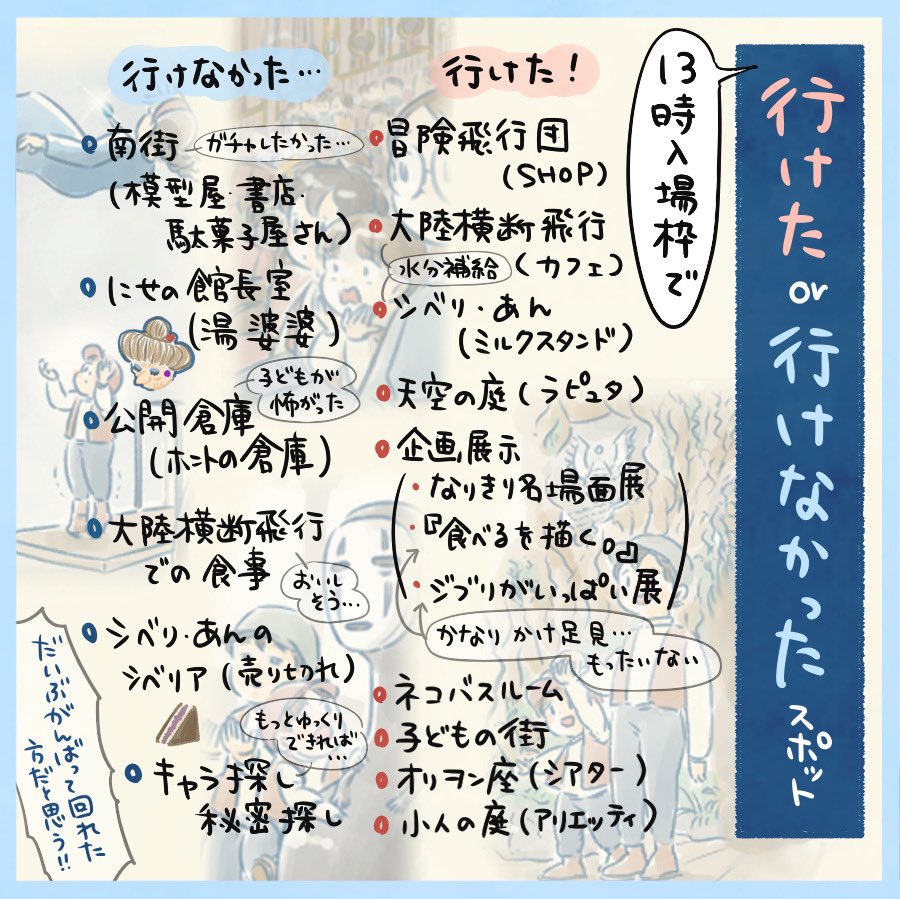 行けた or 行けなかった スポット
13時入場枠で
行けた!
冒険飛行団
(SHOP)
大陸横断飛行
水分補給
(カフェ)
シベリ・あん
(ミルクスタンド)
天空の庭(ラピュタ)
企画展示
・なりきり名場面展
・『食べるを描く。』
・ジブリがいっぱい展
かなりかけ足見…
もったいない
ネコバスルーム
子どもの街
オリヲン座(シアター)
小人の庭(アリエッティ)
行けなかった…
南街
ガチャしたかった…
(模型屋・書店・
駄菓子屋さん)
にせの館長室
(湯婆婆)
子どもが
怖がった
公開倉庫
(ホントの倉庫)
大陸横断飛行
での食事
おいし
そう…
シベリ・あんの
シベリア(売り切れ)
もっとゆっくり
できれば…
キャラ探し
秘密探し
だいぶがんばって回れた
方だと思う!!